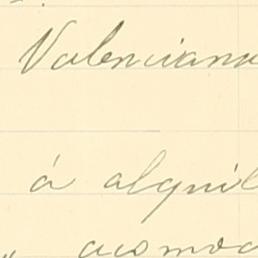 Valenciana
á alquil
acomoda